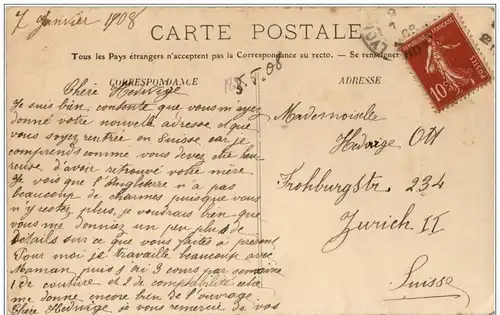 7 Janvier 1908
CARTE POSTALE
Tous les Pays étrangers n'acceptent pas la Correspondance au recto. — Se renseigner
CORRESPONDANCE
ADRESSE
Chère Hedwige
Je suis bien contente que vous m'ayez
donné votre nouvelle adresse et que
vous soyez rentrée en Suisse car je
comprends comme vous devez être heu
reuse d'avoir retrouvé votre mère.
Je vois que l'Angleterre n'a pas
beaucoup de charmes puisque vous
n'y restez plus, je voudrais bien que
vous me donnez un peu plus de
détails sur ce que vous faites à présent
Pour moi je travaille beaucoup avec
Maman puis j'ai 3 cours par semaine
1 de couture et 2 de comptabilité cela
me donne encore bien de l'ouvrage
Chère Hedwige je vous remercie de vos
Mademoiselle
Hedwige Ott
Frohburgstr. 234
Zurich IV
Suisse
10